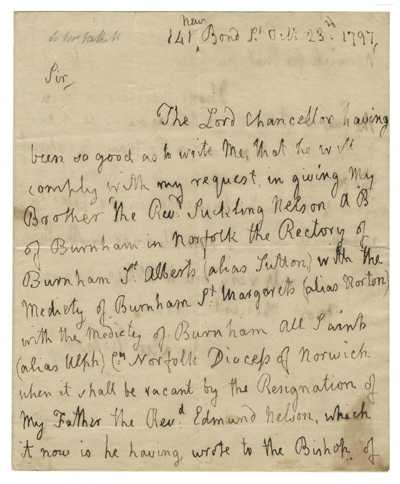 141 New Bond St. Octr. 23rd 1797,
Sir,
The Lord Chancellor having
been so good as to write me, that he will
comply with my request, in giving my
Brother the Revd. Suckling Nelson A B
of Burnham in Norfolk the Rectory of
Burnham St. Alberts (alias Sutton) with the
Mediety of Burnham St. Margarets (alias Norton)
with the Mediety of Burnham All Saints
(alias Ulph) Cm. Norfolk Diocess of Norwich
when it shall be vacant by the Resignation of
My Father the Revd. Edmund Nelson, which
it now is he having wrote to the Bishop of